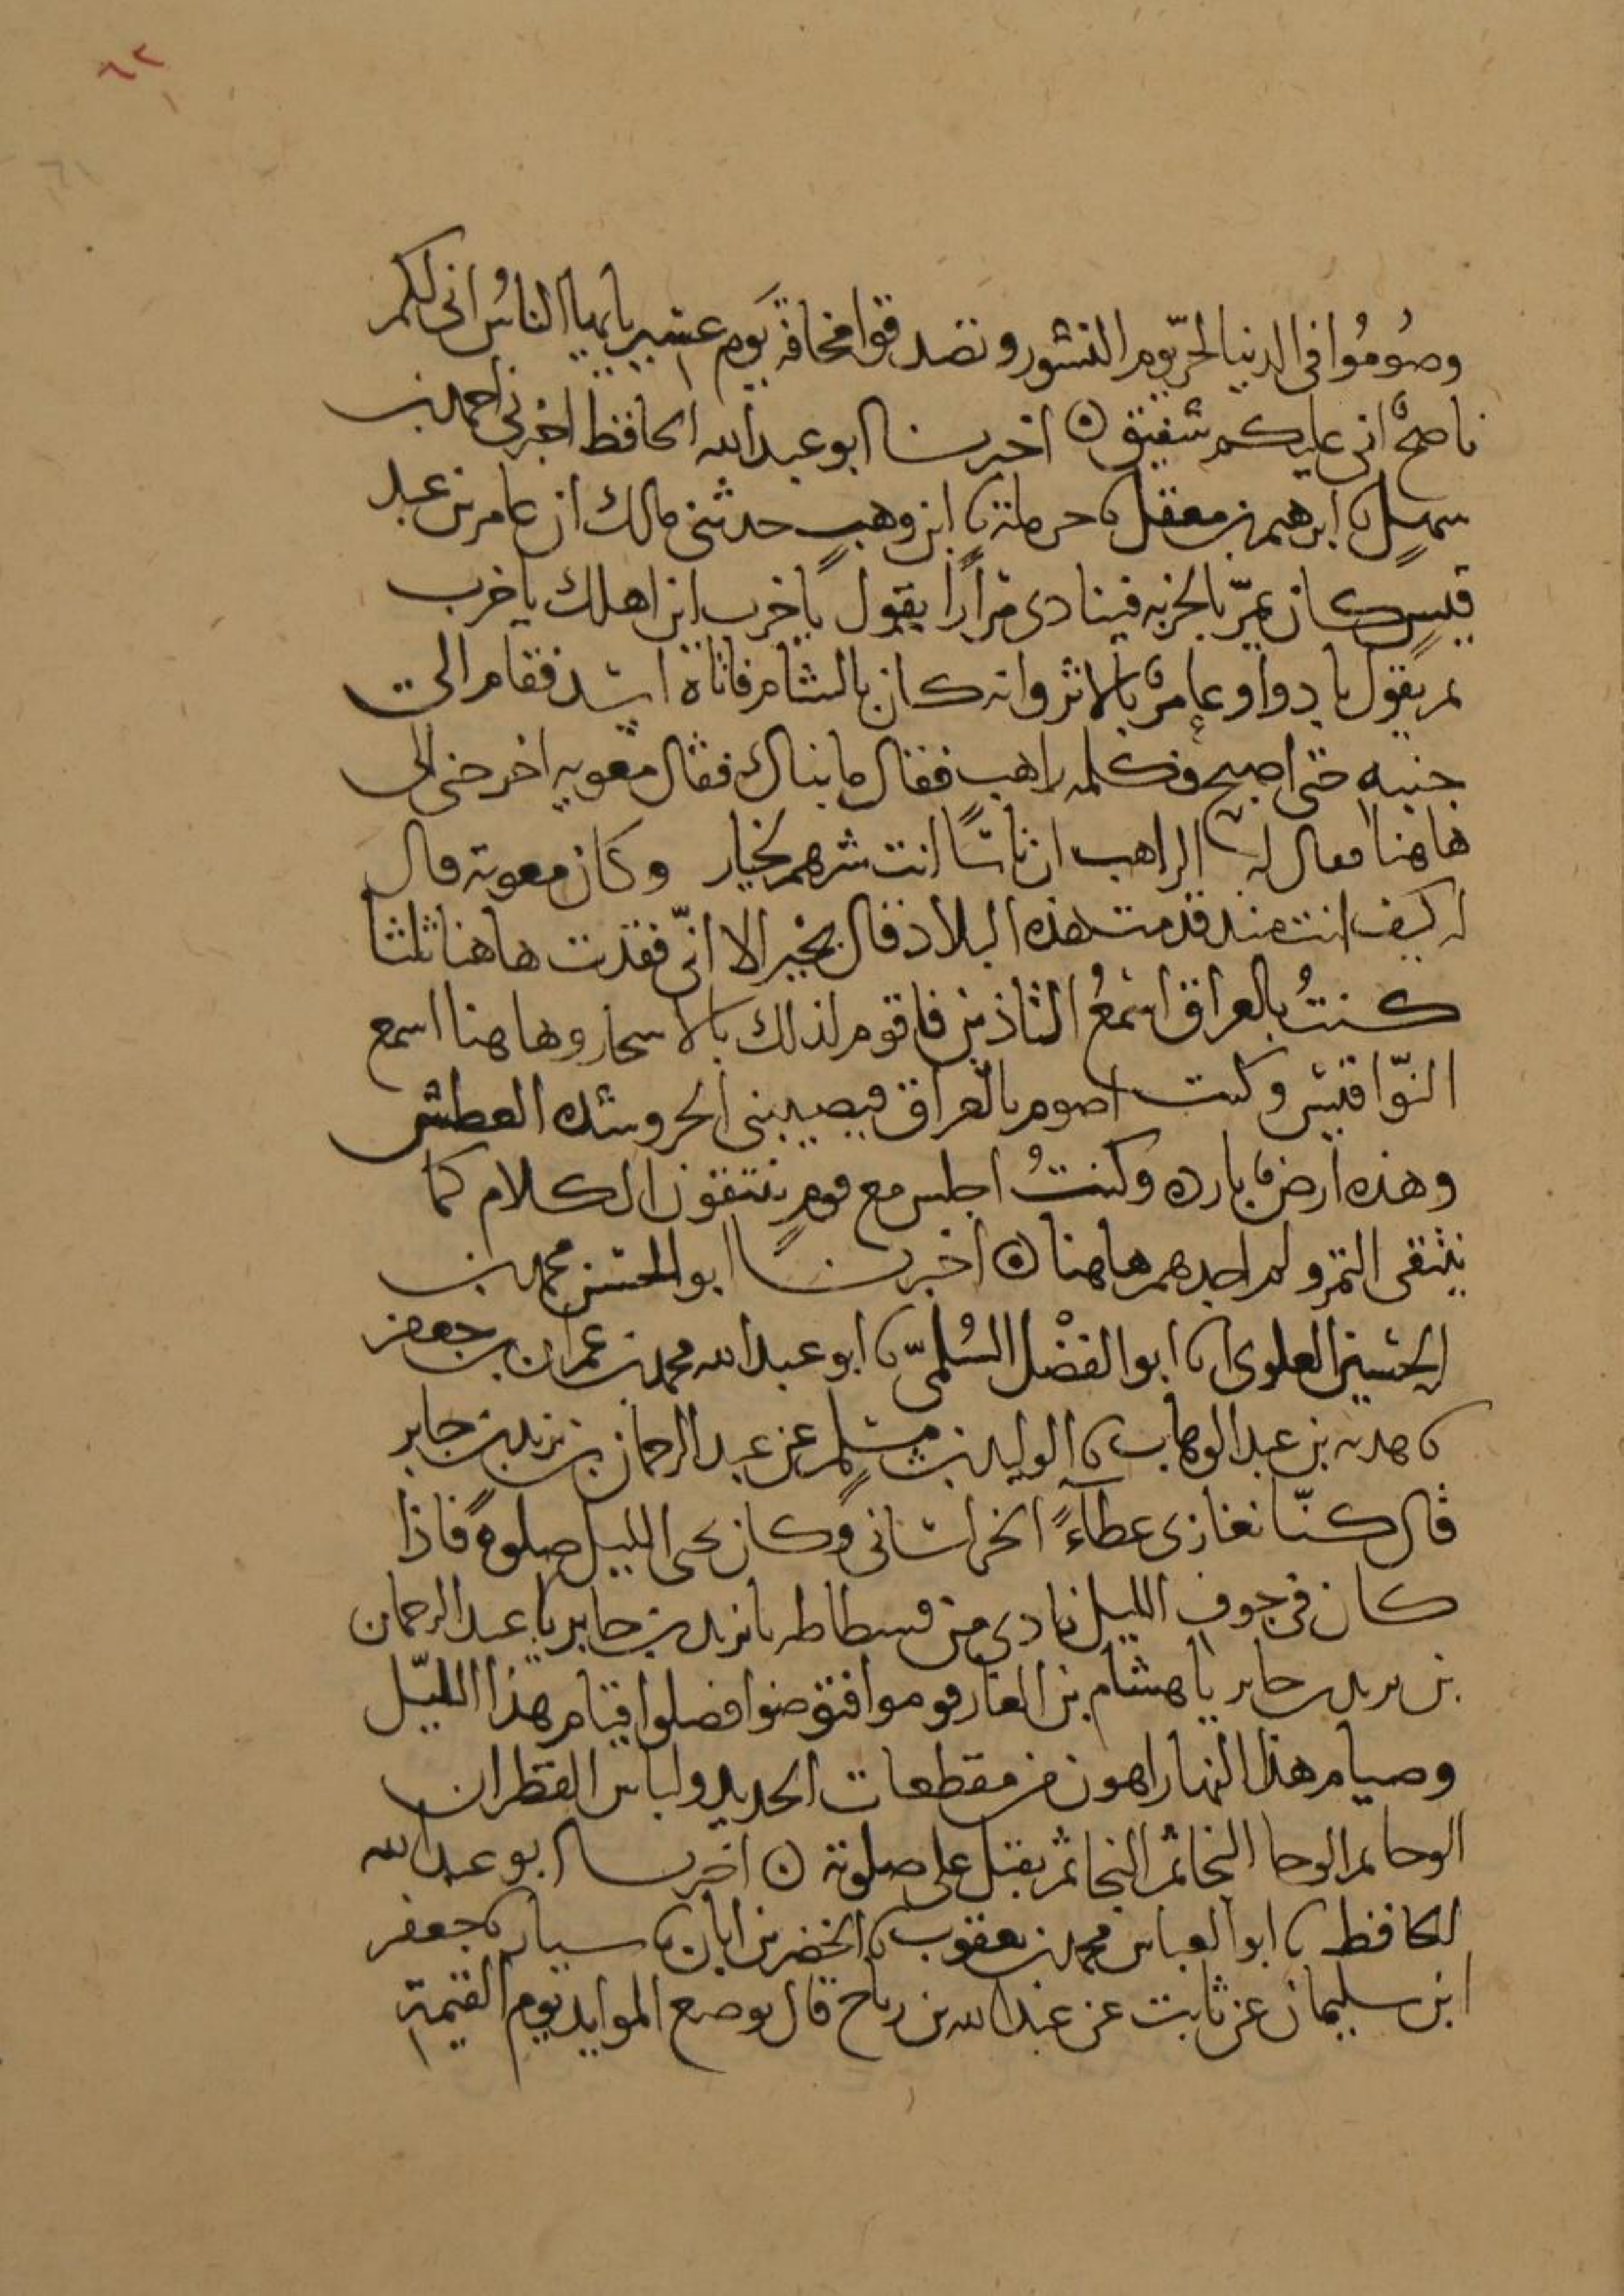 ٦٢
وصُومُوا فى الدنيا لحرّ يوم النشور وتصدقوا مخافة يوم عسير يا ايها الناسُ انى لكم
ناصحٌ انى عليكم شفيق ۞ اخبرنا ابو عبد الله الحافظ اخبرنى احمد بن
سهلٍ نا ابرهيم بن معقل نا حرملة نا ابن وهبٍ حدثنى مالك ان عامر بن عبد
قيسٍ كان يمرّ بالخربه فينادى مرارًا يقول يا خرب اين اهلك يا خرب
ثم يقول بادوا وعامرٌ بالاثر وانه كان بالشام فاتاه اسد فقام الى
جنبه حتى اصبح وكلمه راهب فقال ما بنالك فقال معويه اخرجنى الى
هاهنا فقال له الراهب ان ناسًا انت شرهم لخيار وكان معوية قال
له كيف انت منذ قدمت هذه البلاد فقال بخير الا انّى فقدت هاهنا ثلثا
كنتُ بالعراق اسمعُ التاذين فاقوم لذلك بالاسحار وهاهنا اسمع
النّواقيس وكنت اصوم بالعراق فيصيبنى الحر وشده العطش
وهذه ارضٌ بارده وكنتُ اجلس مع قومٍ ينتقون الكلام كما
ينتقى التمر ولم اجدهم هاهنا ۞ اخبرنا ابو الحسن محمد بن
الحسين العلوى انا ابو الفضْل السُلمىّ نا ابو عبد الله محمد بن عمران بن جعفر
نا هدبه بن عبد الوهاب نا الوليد بن مسلمٍ عن عبد الرحمان بن يزيد بن جابر
قال كنّا نغازى عطآءً الخراسانى وكان يحى الليل صلوةً فاذا
كان فى جوف الليل نادى من فسطاطه يا يزيد بن جابر يا عبد الرحمان
بن يزيد بن جابر يا هشام بن الغاز قوموا فتوضوا فصلوا فقيام هذا الليّل
وصيام هذا النهار اهون من مقطعات الحديد ولباس القطران
الوحا ثم الوحا النجا ثم النجا ثم يقبل على صلوته ۞ اخبرنا ابو عبد الله
الحافظ نا ابو العباس محمد بن يعقوب نا الخضر بن ابان نا سيار نا جعفر
ابن سليمان عن ثابت عن عبد الله بن رباح قال يوضع الموايد يوم القيمة